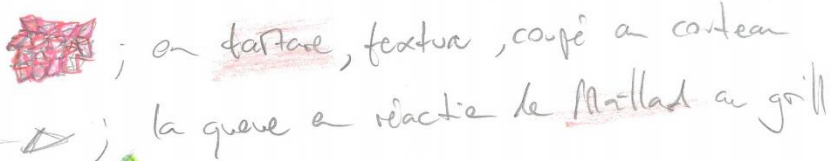 ; en tartare, textur, coupé au couteau
; la queue en réaction de Maillard au grill